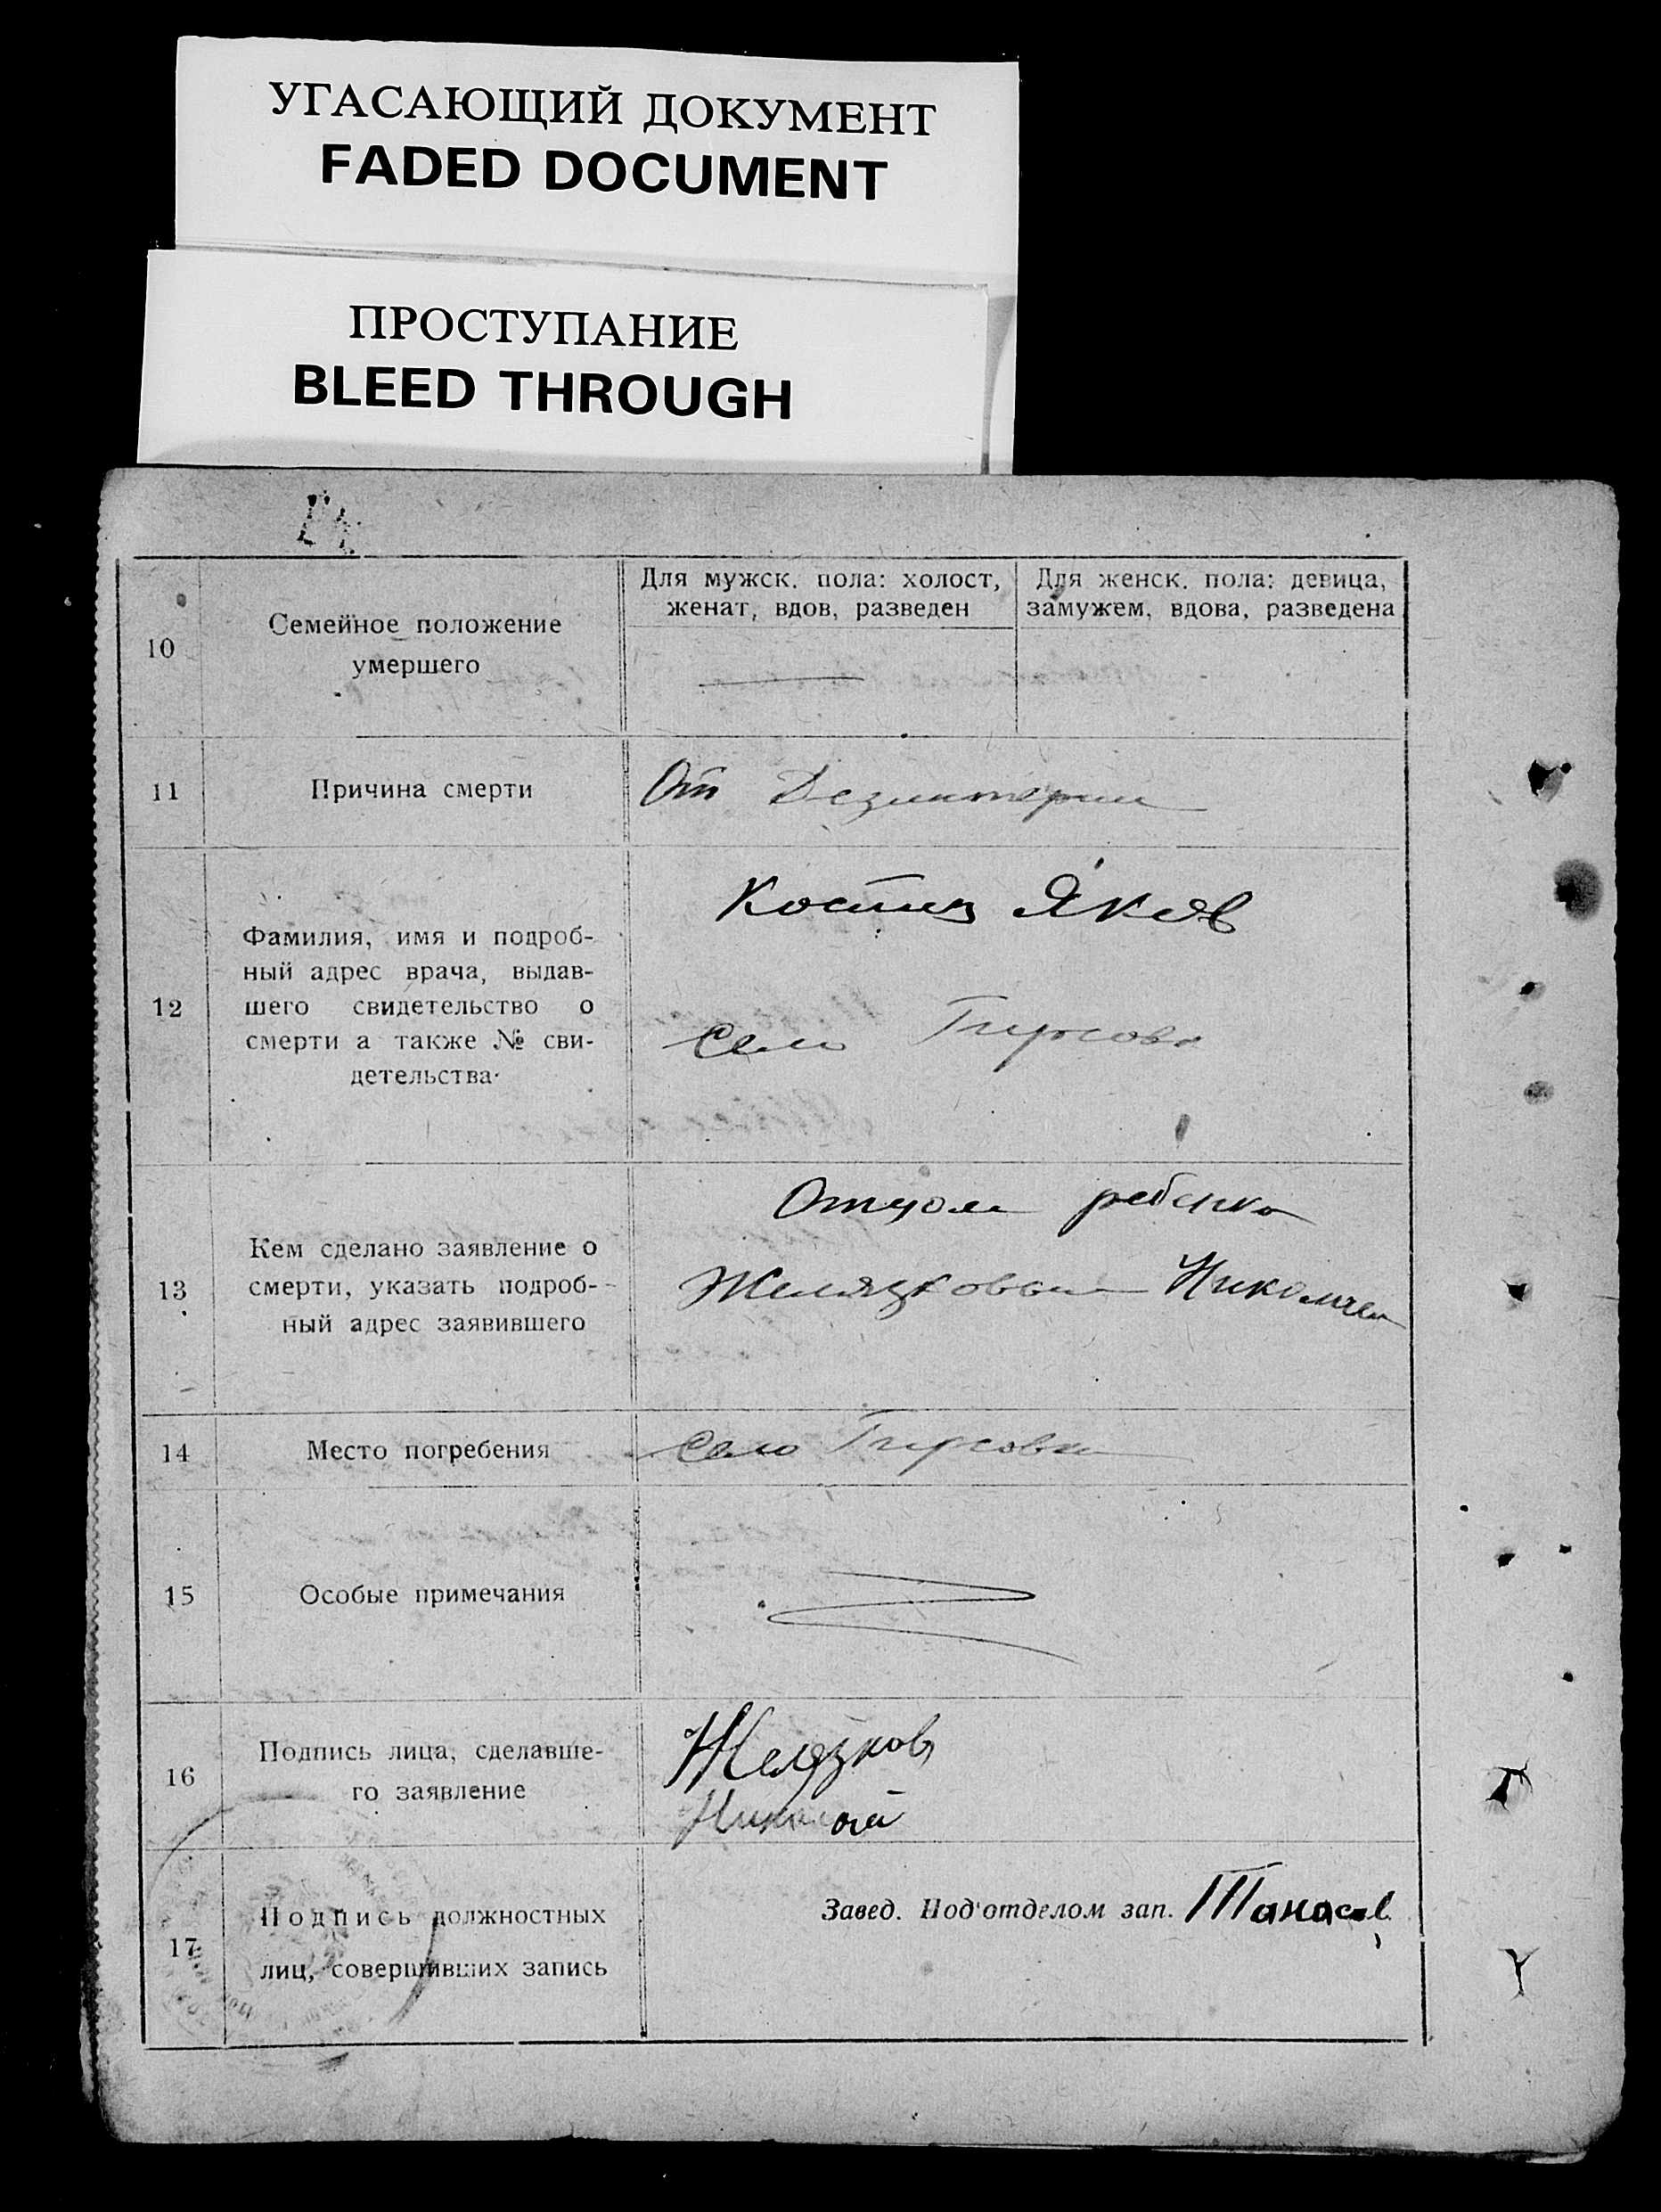 УГАСАЮЩИЙ ДОКУМЕНТ
FADED DOCUMENT
ПРОСТУПАНИЕ
BLEED THROUGH
10
Семейное положение
умершего
Для мужск. пола: холост,
женат, вдов, разведен
Для женск. пола: девица,
замужем, вдова, разведена
11
Причина смерти
От Дезинтерии
12
Фамилия, имя и подроб-
ный адрес врача, выдав-
шего свидетельство о
смерти а также № сви-
детельства
Костин Яков
Село
13
Кем сделано заявление о
смерти, указать подроб-
ный адрес заявившего
Отцом ребенка
Желязковым Николаем
14
Место погребения
Село
15
Особые примечания
16
Подпись лица, сделавше-
го заявление
Желязков
Николай
17
Подпись должностных
лиц, совершивших запись
Завед. Под'отделом зап. Танасов